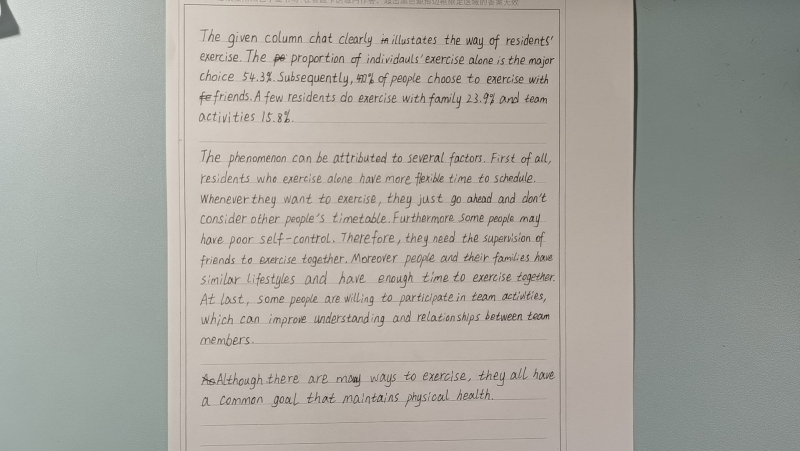 The given column chat clearly illustates the way of residents'
exercise. The proportion of individauls' exercise alone is the major
choice 54.3%. Subsequently, % of people choose to exercise with
friends. A few residents do exercise with family 23.9% and team
activities 15.8%.
The phenomenon can be attributed to several factors. First of all,
residents who exercise alone have more flexible time to schedule.
Whenever they want to exercise, they just go ahead and don't
consider other people's timetable. Furthermore some people may
have poor self-control. Therefore, they need the supervision of
friends to exercise together. Moreover people and their families have
similar lifestyles and have enough time to exercise together.
At last, some people are willing to participate in team activities,
which can improve understanding and relationships between team
members.
Although there are many ways to exercise, they all have
a common goal that maintains physical health.